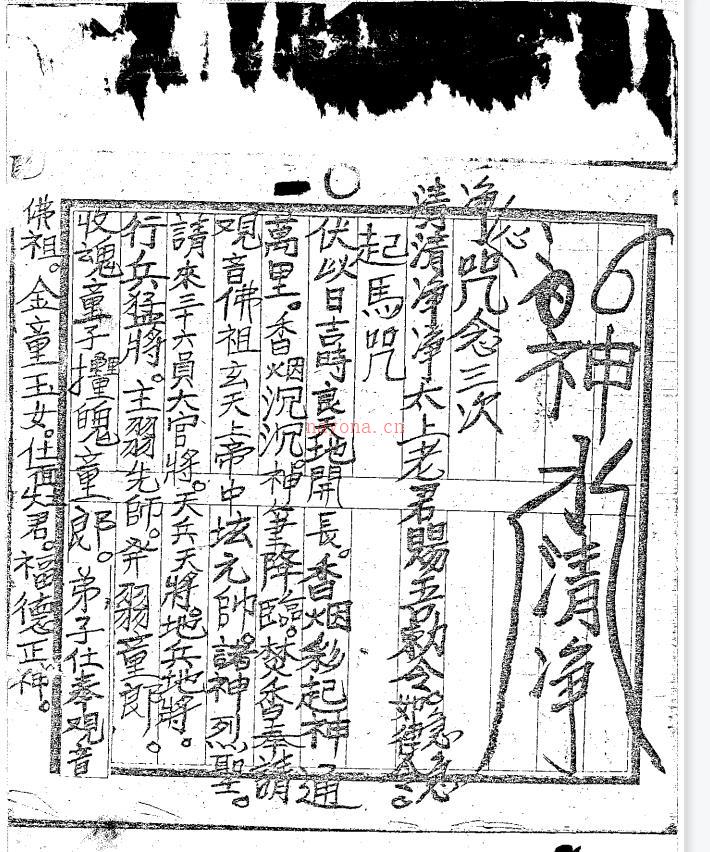 神水清净
净心咒念三次
清清净净太上老君賜吾勅令。急急如律令。
起馬咒
伏以日吉時良天地開長。香烟彩起神通
萬里。香烟沉沉。神筆降臨。焚香奉請
观音佛祖玄天上帝中坛元帥。諸神烈聖。
請來三十六員大官將。天兵天將。地兵地將。
行兵猛將。主先師。発童郎。
收魂童子魄童郎。弟子仕奉观音
佛祖。金童玉女。仕面君。福德正神。
nayona.cn